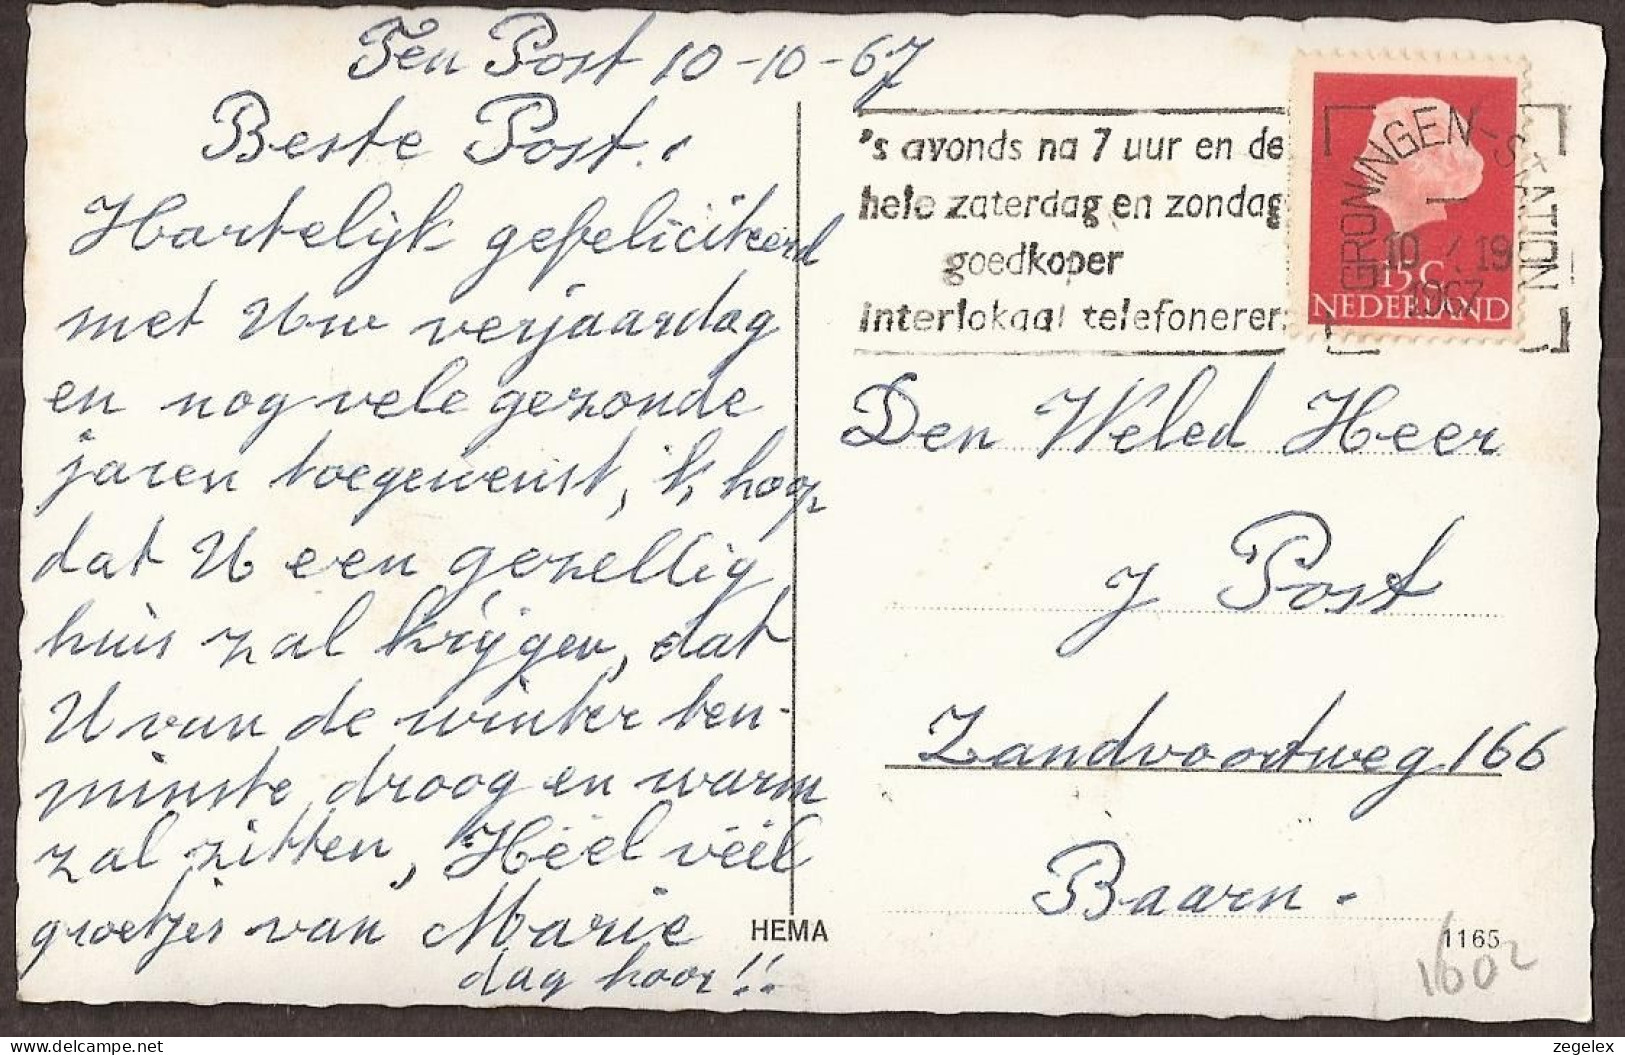 Ten Post 10-10-67
Beste Post.
Hartelijk gefeliciteerd
met Uw verjaardag
en nog vele gezonde
jaren toegewenst, ik hoop
dat U een gezellig
huis zal krijgen, dat
U van de winter ten-
minste droog en warm
zal zitten, Héél véél
groetjes van Marie
dag hoor!!
's avonds na 7 uur en de
hele zaterdag en zondag
goedkoper
interlokaal telefoneren
GRONINGEN-STATION
10 19
1967
15 C
NEDERLAND
Den Weled Heer
J Post
Zandvoortweg 166
Baarn.
HEMA
1165
1602
zegelex